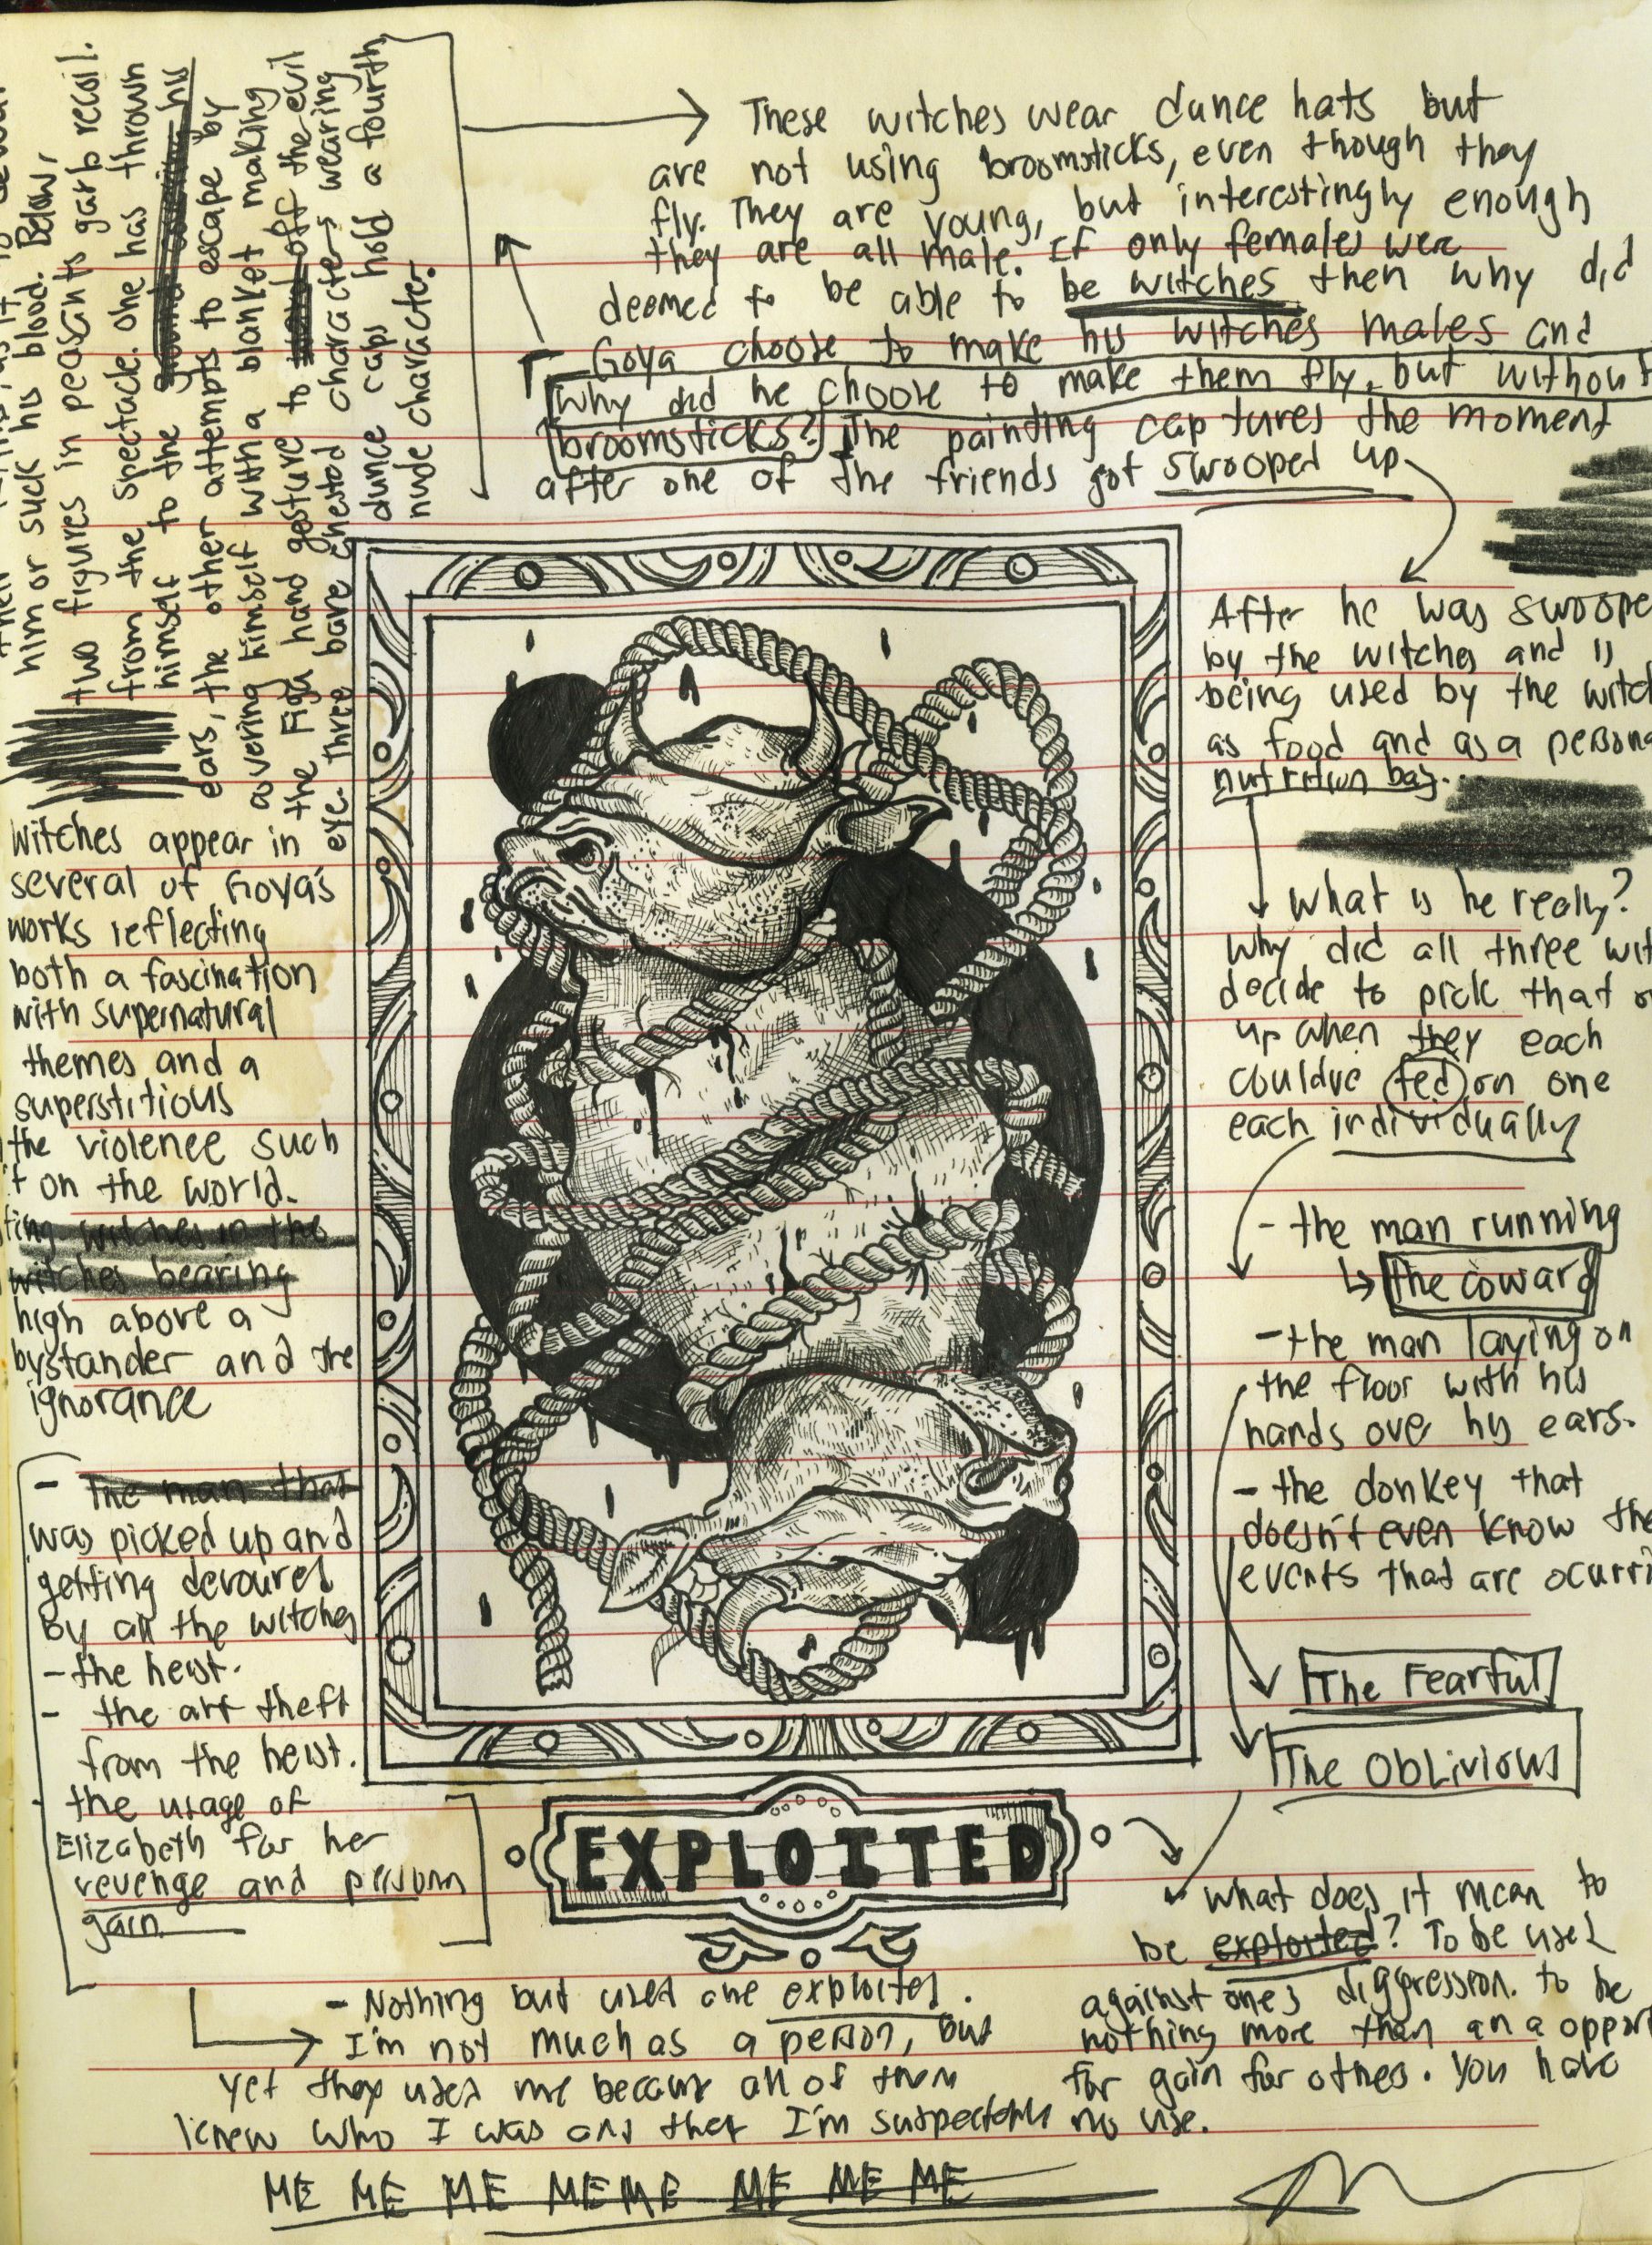 him or suck his blood. Below,
two figures in peasants garb recoil.
from the spectacle. one has thrown
himself to the
ears, the other attempts to escape by
covering himself with a blanket making
the Figa hand gesture to off the evil
eye. Three bare chested characters wearing
dunce caps hold a fourth
nude character.
These witches wear dunce hats but
are not using broomsticks, even though they
fly. They are young, but interestingly enough
they are all male. If only females were
deemed to be able to be witches then why did
Goya choose to make his witches males and
why did he choose to make them fly, but without
broomsticks? The painting captures the moment
after one of the friends got swooped up
witches appear in
several of Goya's
works reflecting
both a fascination
with supernatural
themes and a
superstitious
the violence such
on the world.
witches in the
witches bearing
high above a
bystander and the
ignorance
- The man that
was picked up and
getting devoured
by all the witches
- the heist.
- the art theft
from the heist.
the usage of
Elizabeth for her
revenge and
gain
After he was swoope
by the witches and is
being used by the witc
as food and as a persona
nutrition bag..
what is he really?
why did all three wit
decide to pick that o
up when they each
couldve fed on one
each individually
- the man running
↳ The coward
- the man laying on
the floor with his
hands over his ears.
- the donkey that
doesn't even know the
events that are ocurri
The Fearful
The Oblivious
EXPLOITED
what does it mean to
be exploited? To be used
against ones diggression. to be
nothing more than an a opport
for gain for others. You have
no use.
- Nothing but used and exploited.
I'm not much as a person, but
yet they used me because all of them
knew who I was and that I'm
ME ME ME ME ME ME ME ME